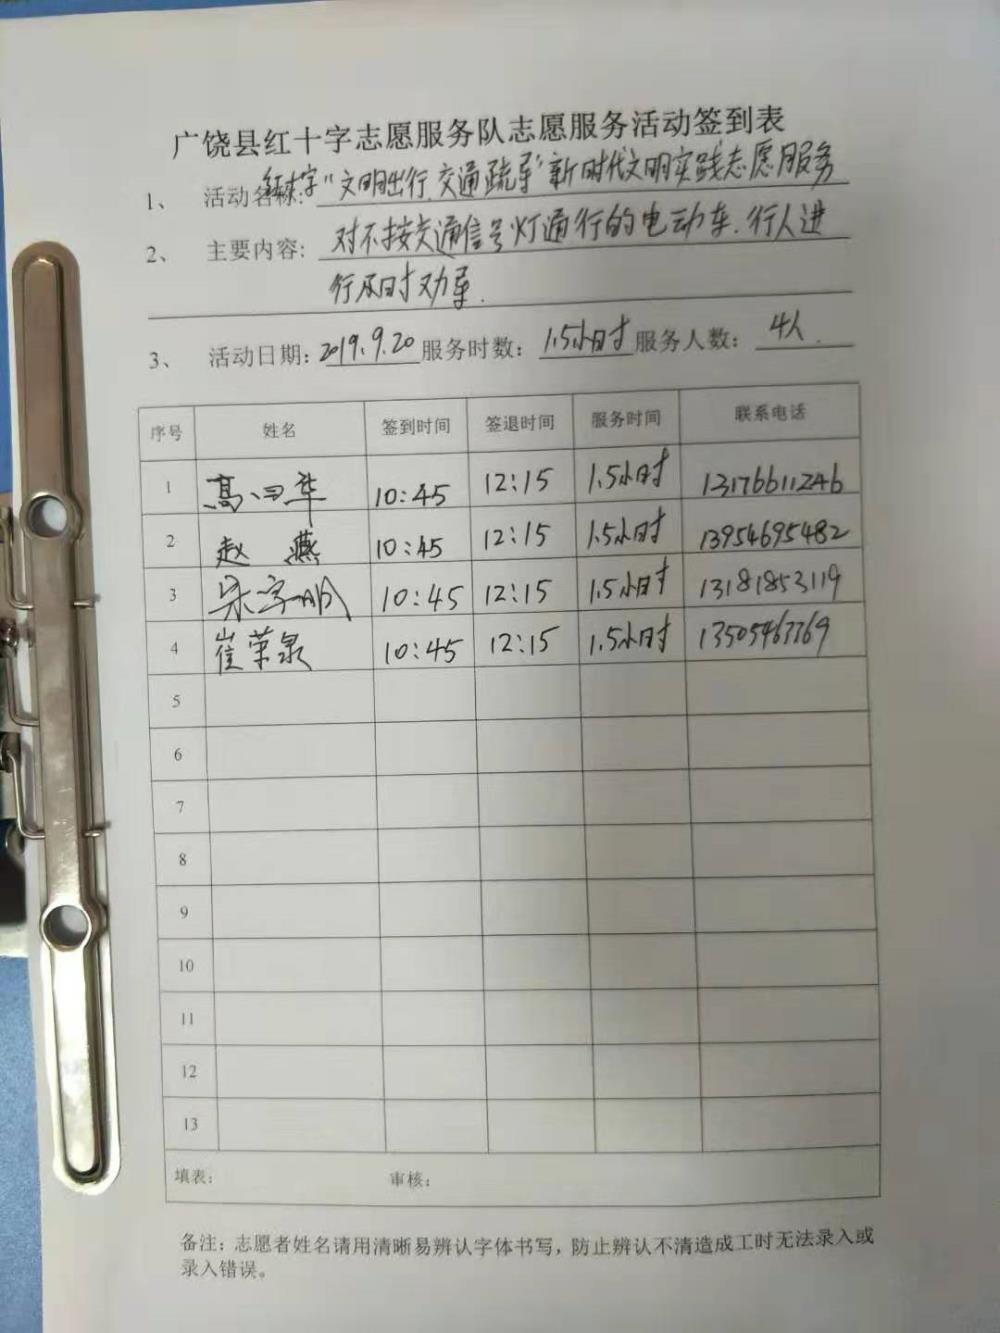 广饶县红十字志愿服务队志愿服务活动签到表
1、 活动名称: 红十字“文明出行 交通疏导”新时代文明实践志愿服务
2、 主要内容: 对不按交通信号灯通行的电动车.行人进
行及时劝导.
3、 活动日期: 2019.9.20 服务时数: 1.5小时 服务人数: 4人.
序号 姓名 签到时间 签退时间 服务时间 联系电话
1 高 华 10:45 12:15 1.5小时 13176611246
2 赵燕 10:45 12:15 1.5小时 13954695482
3 10:45 12:15 1.5小时 13181853119
4 崔荣泉 10:45 12:15 1.5小时
5
6
7
8
9
10
11
12
13
填表: 审核:
备注: 志愿者姓名请用清晰易辨认字体书写，防止辨认不清造成工时无法录入或
录入错误。